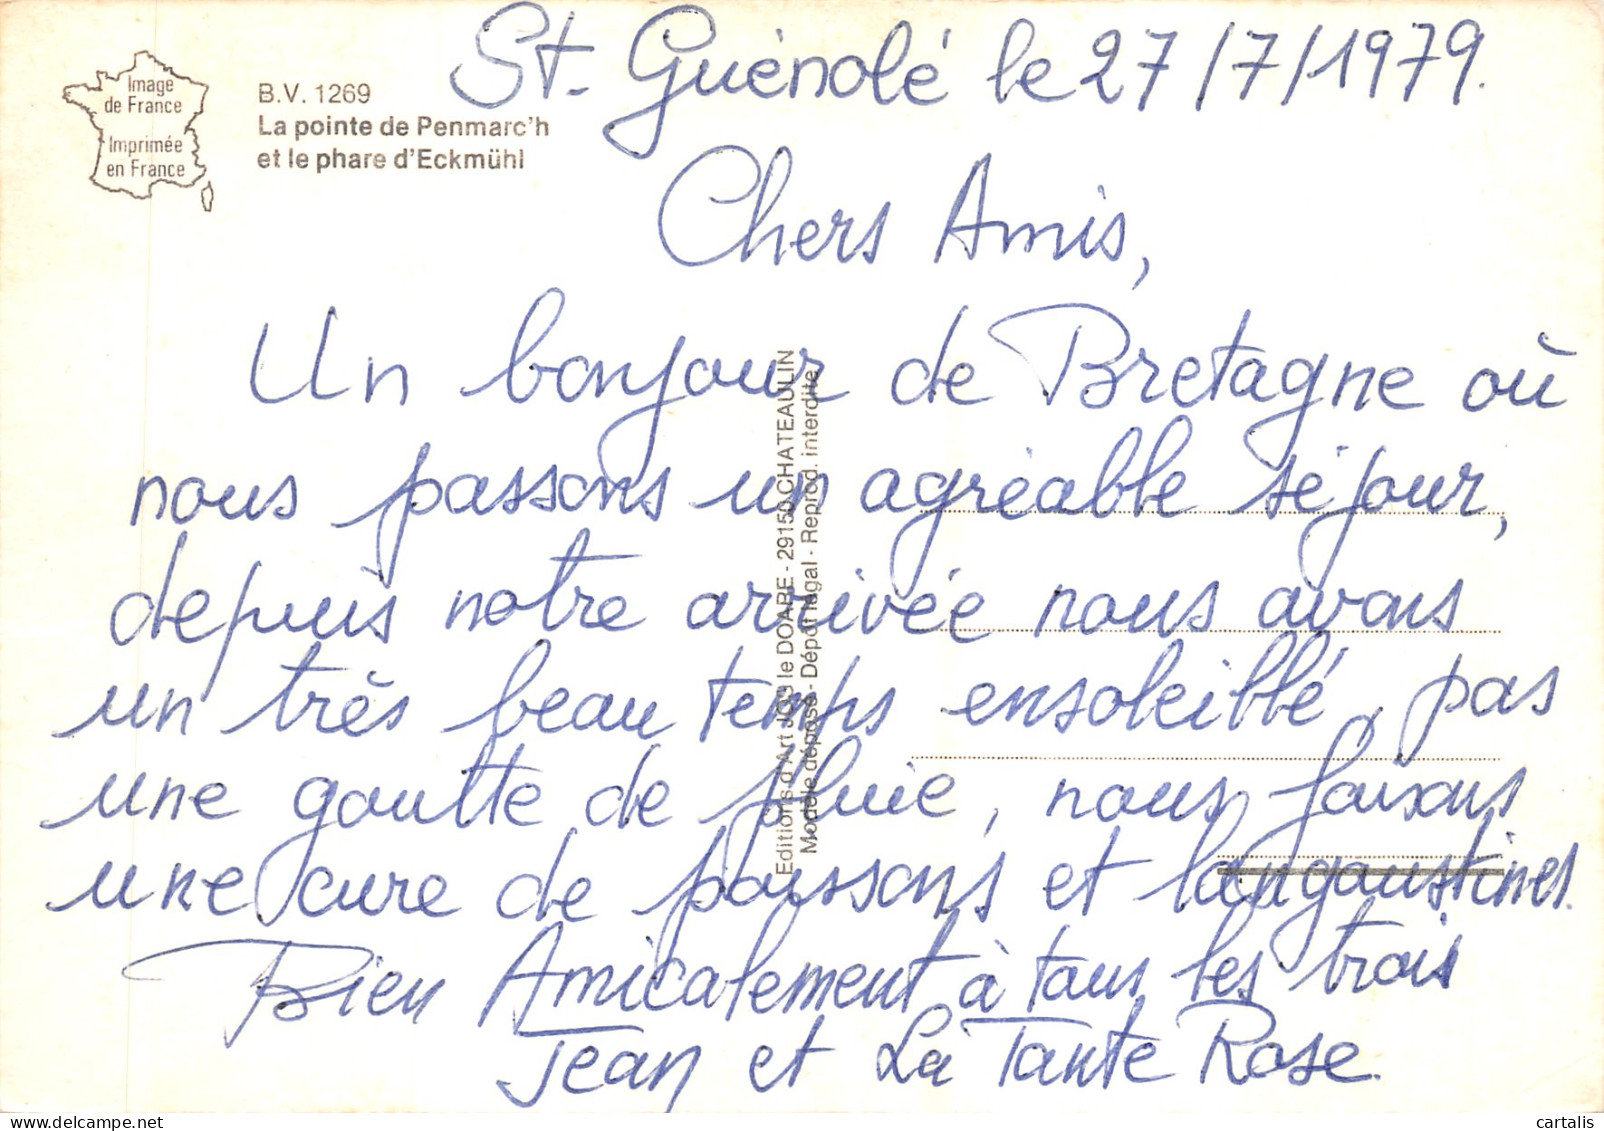 Image
de France
Imprimée
en France
B.V. 1269
La pointe de Penmarc'h
et le phare d'Eckmühl
St. Guénolé le 27/7/1979.
Chers Amis,
Un bonjour de Bretagne où
nous passons un agréable séjour,
depuis notre arrivée nous avons
un très beau temps ensoleillé, pas
une goutte de pluie, nous faisons
une cure de poissons et langoustines.
Bien Amicalement à tous les trois
Jean et La Tante Rose.
Editions d'Art JOS le DOARE - 29150 CHATEAULIN
Modèle déposé - Dépôt légal - Reprod. interdite
cartalis